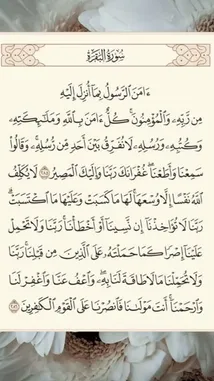 سُورَةُ البَقَرَةِ
ءَامَنَ ٱلرَّسُولُ بِمَآ أُنزِلَ إِلَيْهِ
مِن رَّبِّهِۦ وَٱلْمُؤْمِنُونَ ۚ كُلٌّ ءَامَنَ بِٱللَّهِ وَمَلَٰٓئِكَتِهِۦ
وَكُتُبِهِۦ وَرُسُلِهِۦ لَا نُفَرِّقُ بَيْنَ أَحَدٍ مِّن رُّسُلِهِۦ ۚ وَقَالُوا۟
سَمِعْنَا وَأَطَعْنَا ۖ غُفْرَانَكَ رَبَّنَا وَإِلَيْكَ ٱلْمَصِيرُ ٢٨٥ لَا يُكَلِّفُ
ٱللَّهُ نَفْسًا إِلَّا وُسْعَهَا ۚ لَهَا مَا كَسَبَتْ وَعَلَيْهَا مَا ٱكْتَسَبَتْ ۗ
رَبَّنَا لَا تُؤَاخِذْنَآ إِن نَّسِينَآ أَوْ أَخْطَأْنَا ۚ رَبَّنَا وَلَا تَحْمِلْ
عَلَيْنَآ إِصْرًا كَمَا حَمَلْتَهُۥ عَلَى ٱلَّذِينَ مِن قَبْلِنَا ۚ رَبَّنَا
وَلَا تُحَمِّلْنَا مَا لَا طَاقَةَ لَنَا بِهِۦ ۖ وَٱعْفُ عَنَّا وَٱغْفِرْ لَنَا
وَٱرْحَمْنَآ ۚ أَنتَ مَوْلَىٰنَا فَٱنصُرْنَا عَلَى ٱلْقَوْمِ ٱلْكَٰفِرِينَ ٢٨٦